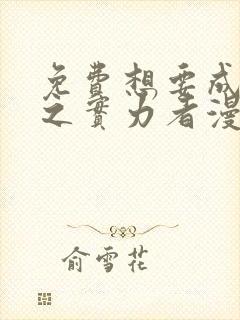 免费想要成
之實力者漫
俞雪花